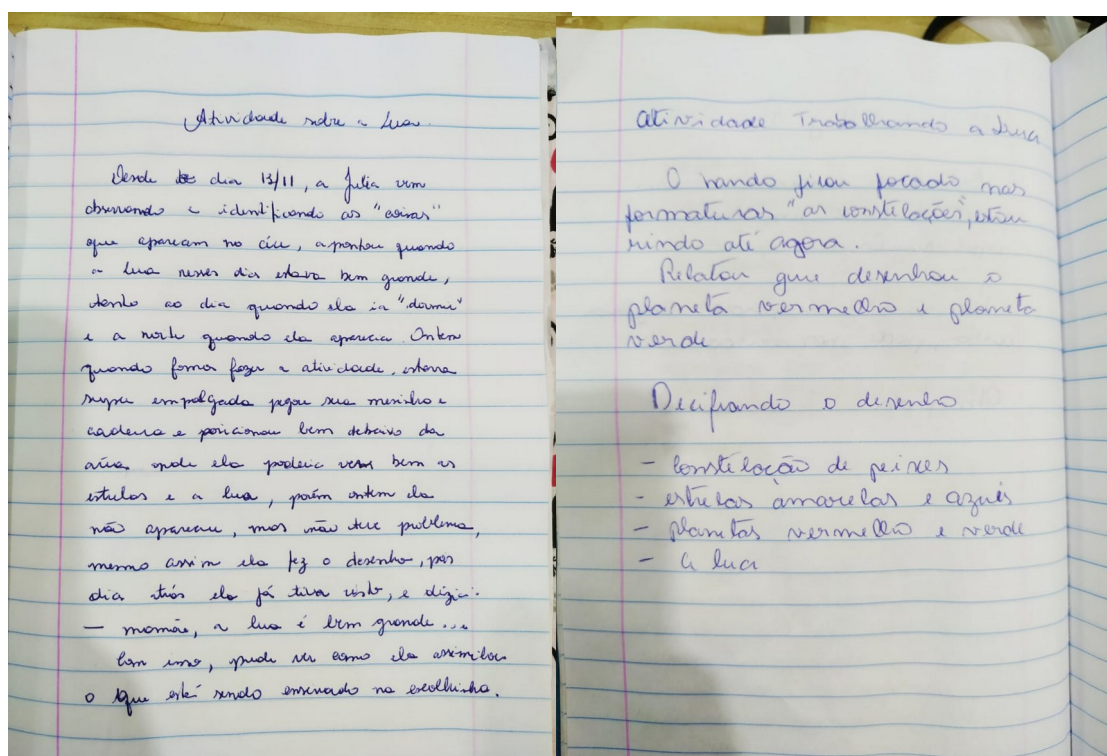 Atividade sobre a Lua.
Desde dia 13/11, a Julia vem
observando e identificando as "coisas"
que aparecem no céu, apontou quando
a lua nesses dias estava bem grande,
tanto ao dia quando ela ia "dormir"
e a noite quando ela aparecia. Ontem
quando fomos fazer a atividade, estava
super empolgada pegou sua mesinha e
cadeira e posicionou bem debaixo da
área onde ela poderia ver bem as
estrelas e a lua, porém ontem ela
não apareceu, mas não teve problema,
mesmo assim ela fez o desenho, pois
dias atrás ela já tiha visto, e dizia:
— mamãe, a lua é bem grande...
Com isso, pude ver como ela assimilou
o que está sendo ensinado na escolhinha.
Atividade Trabalhando a Lua
O nando ficou focado nas
formaturas "as constelações", estou
rindo até agora.
Relatou que desenhou o
planeta vermelho e planeta
verde
Decifrando o desenho
- Constelação de peixes
- estrelas amarelas e azuis
- planetas vermelho e verde
- a lua